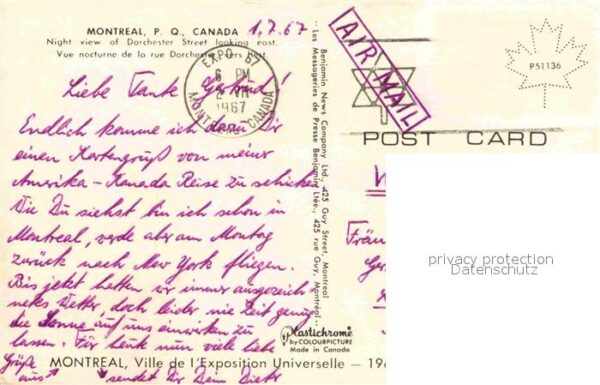 MONTREAL, P. Q., CANADA 1.7.67
Night view of Dorchester Street looking east.
Vue nocturne de la rue Dorchester vers est.
EXPO 67
6 PM
VII
1967
MONTREAL CANADA
AIR MAIL
P51136
POST CARD
Benjamin News Company Ltd., 425 Guy Street, Montreal
Les Messageries de Presse Benjamin Ltée., 425 rue Guy, Montréal
Liebe Tante Gertrud!
Endlich komme ich dazu Dir
einen Kartengruß von meiner
Amerika-Kanada Reise zu schicken.
Wie Du siehst bin ich schon in
Montreal, werde aber am Montag
zurück nach New York fliegen.
Bis jetzt hatten wir immer ausgezeich-
netes Wetter, doch leider nie Zeit genug
die Sonne auf uns einwirken zu
lassen. Für heute nun viele liebe
Grüße
aus sendet Dir Dein Dieter
Fräu
privacy protection
Datenschutz
Plastichrome
by COLOURPICTURE
Made in Canada
MONTREAL, Ville de l'Exposition Universelle — 196